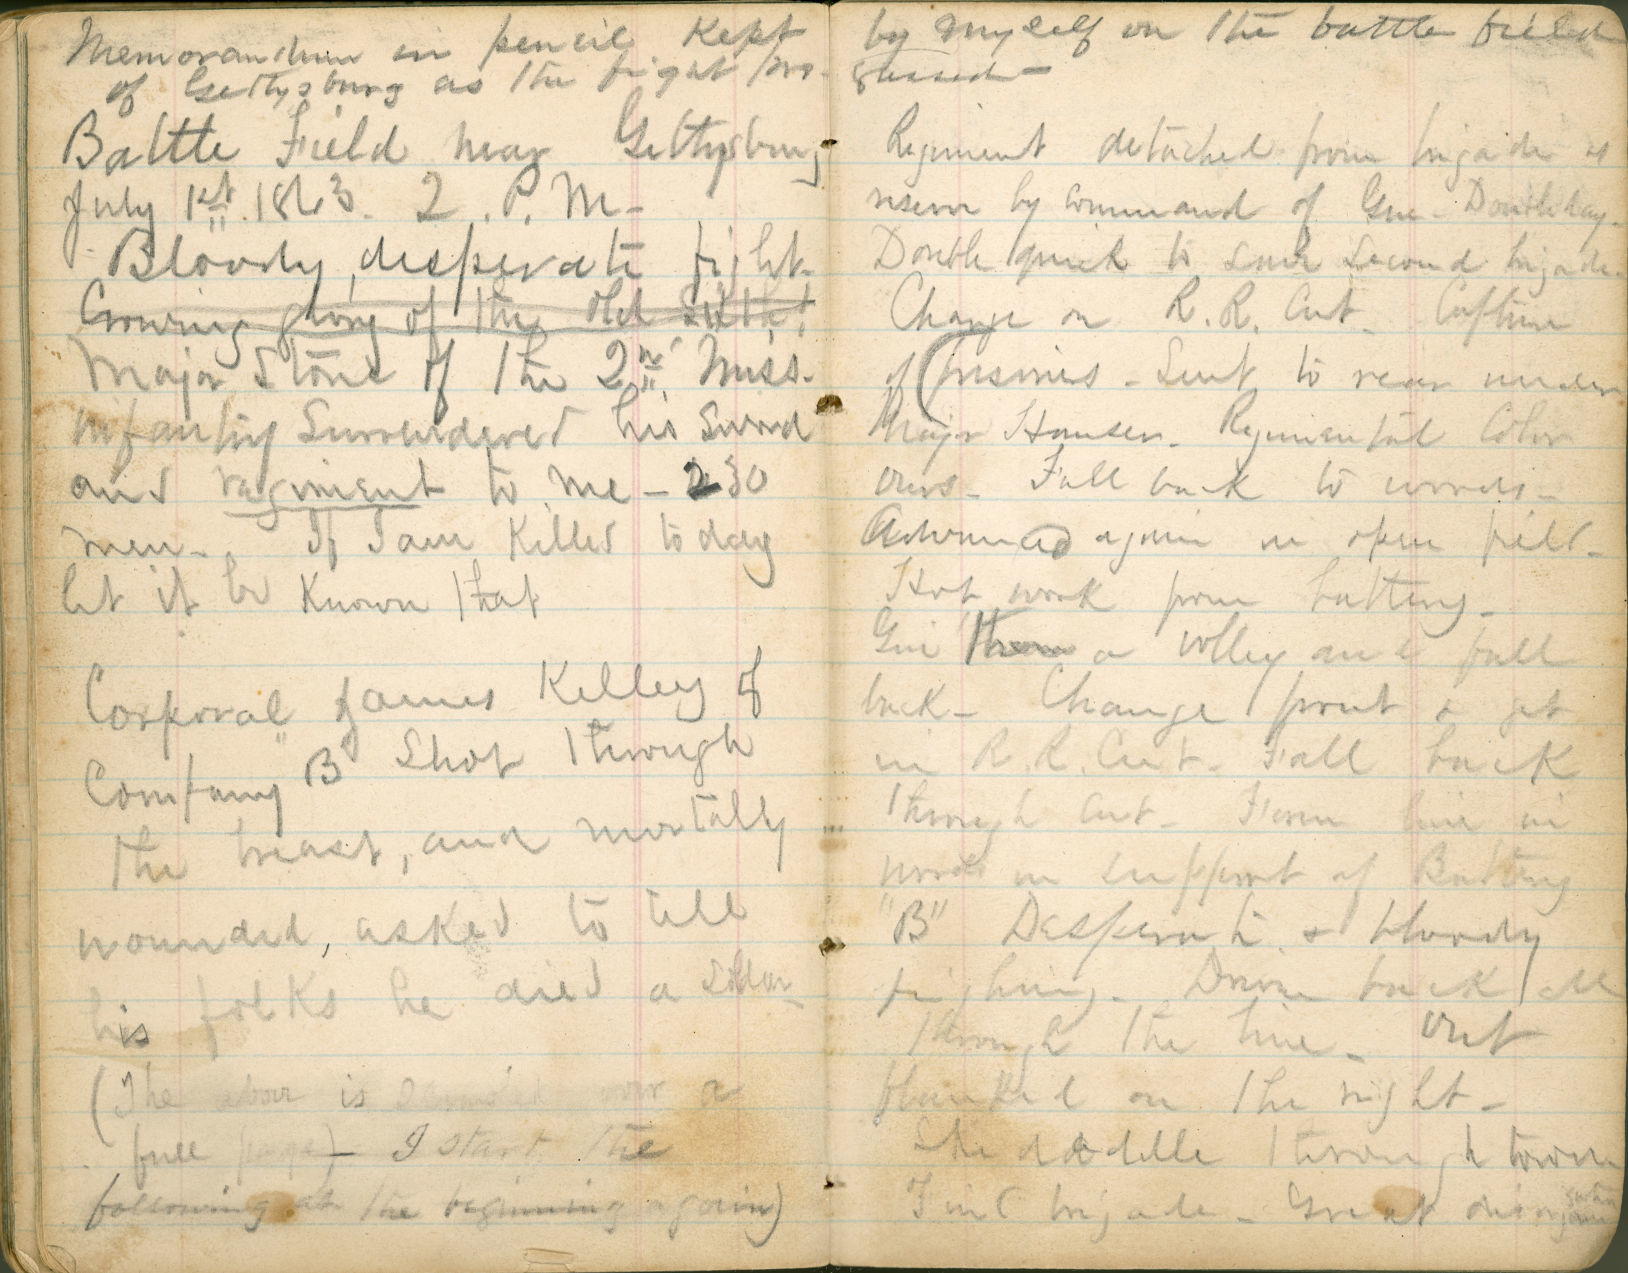 Memorandum in pencil, Kept by myself on the battle field
of Gettysburg as the fight pro-gressed-
Battle Field near Gettysburg
July 1st. 1863. 2. P. M-
Bloody, desperate fight.
Crowning glory of the old Sixth!
Major Stone of the 2nd Miss.
infantry Surrendered his sword
and regiment to me - 230
men-. If I am Killed today
let it be Known that
Corporal James Kelley of
Company "B" Shot through
the breast, and mortally
wounded, asked to tell
his folks he died a Soldier-
(The above is scrawled over a
full page) - I start the
following at the beginning again)
Regiment detached from brigade as
reserve by command of Gen. Doubleday.
Double quick to save Second brigade.
Charge on R. R. Cut. Capture
of prisoners - Sent to rear under
Major Hauser. Regimental Color
ours. Fall back to woods-
Advanced again in open field.
Hot work from battery-
Give them a volley and fall
back- Change front & get
in R. R. Cut. Fall back
through Cut. Form line in
woods in support of Battery
"B" Desperate & bloody
fighting. Driven back all
through the line- Out
flanked on the right-
Skedaddle through town
Find brigade - Great